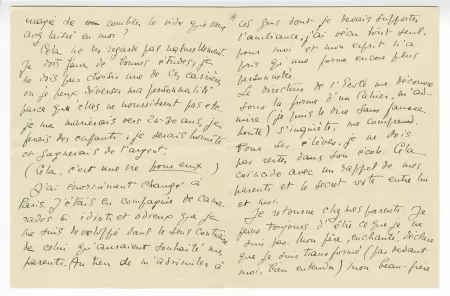 essayé de combler le vide que vous
aviez laissé en moi ?
Cela ne les regarde pas naturellement
je dois faire de bonnes études, je
ne dois pas choisir une de ces carrières
où je peux déverser ma personnalité
parce que elles ne nourrissent pas etc.
je me marierais vers 26-30 ans, je
ferais des enfants, je serais honnête
et gagnerais de l'argent.
(Cela, c'est une vie pour eux.)
J'ai énormément changé à
Paris. J'étais en compagnie de cama-
rades si idiots et odieux que je
me suis développé dans le sens contraire
de celui qu'auraient souhaité mes
parents. Au lieu de m'assimiler à
ces gens dont je devais supporter
l'ambiance, j'ai vécu tout seul,
pour moi et mon esprit n'a
pris qu'une forme encore plus
personnelle.
Le directeur de l'École me découvre
sous la forme d'un cahier, m'ad-
mire (je puis le dire sans fausse
honte) s'inquiète, me comprend.
Pour ses élèves, je ne dois
pas rester dans son école. Cela
coïncide avec un rappel de mes
parents et le secret reste entre lui
et moi.
Je retourne chez mes parents. Je
feins toujours d'être ce que je ne
suis pas. Mon père, enchanté, déclare
que je suis transformé (pas devant
moi, bien entendu) mon beau-frère